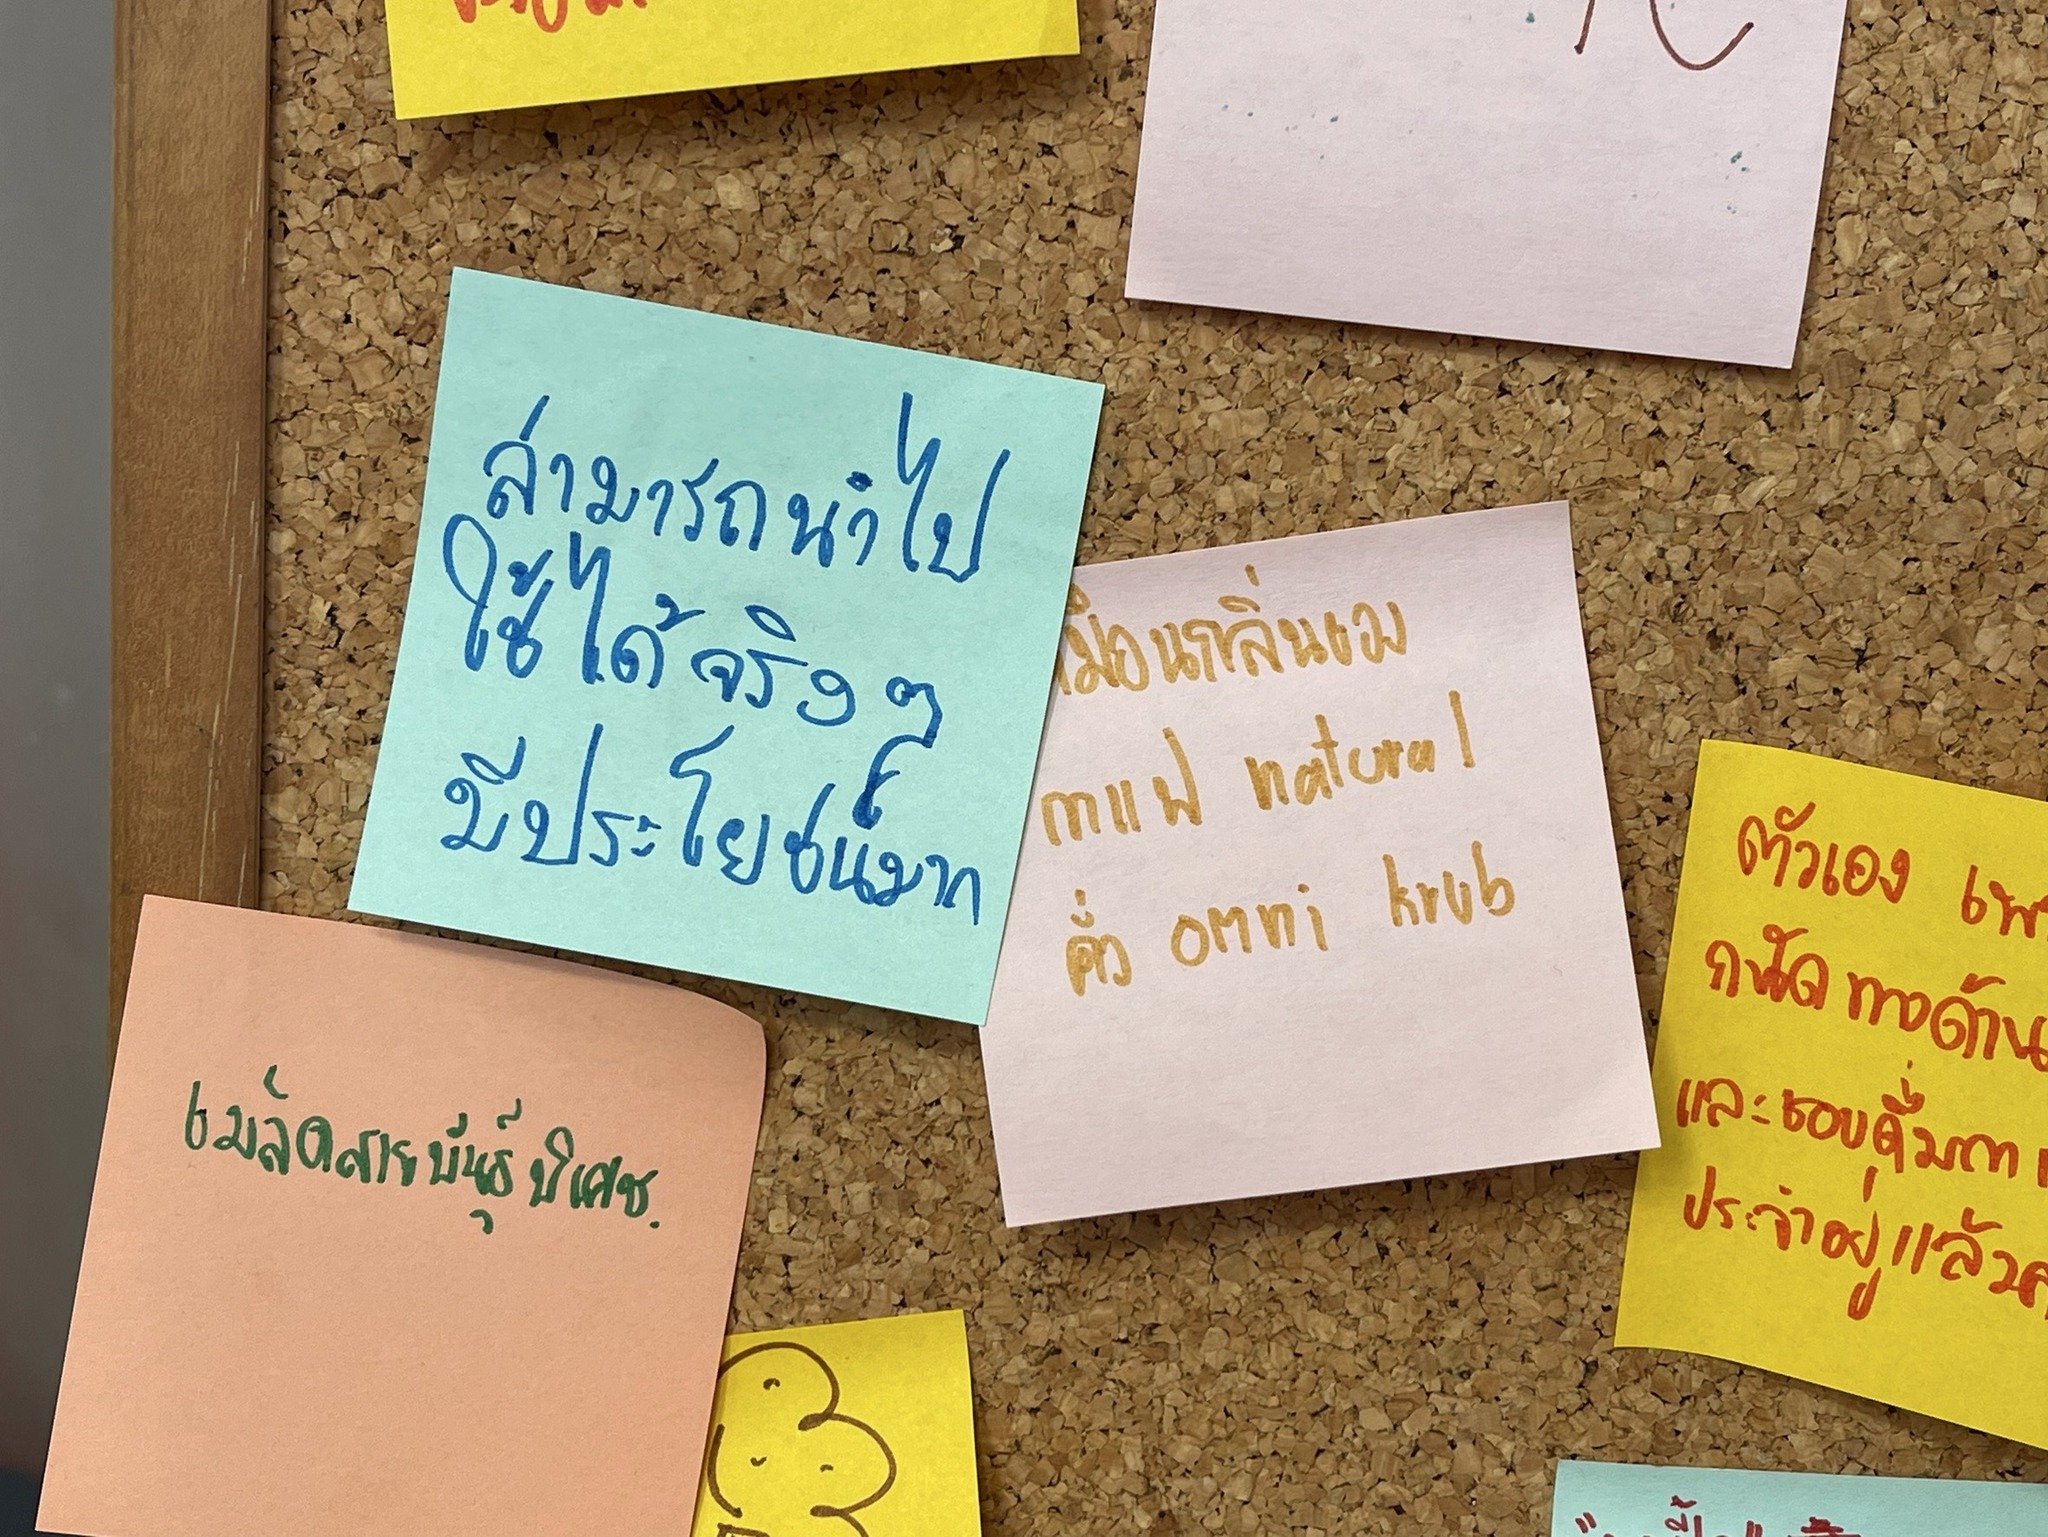 สามารถนำไป
ใช้ได้จริงๆ
มีประโยชน์มาก
เมล็ดสายพันธุ์พิเศษ.
กลิ่นของ
กาแฟ natural
คั่ว omni krub
ตัวเอง
ถนัดทางด้าน
และชอบดื่มกา
ประจำอยู่แล้ว